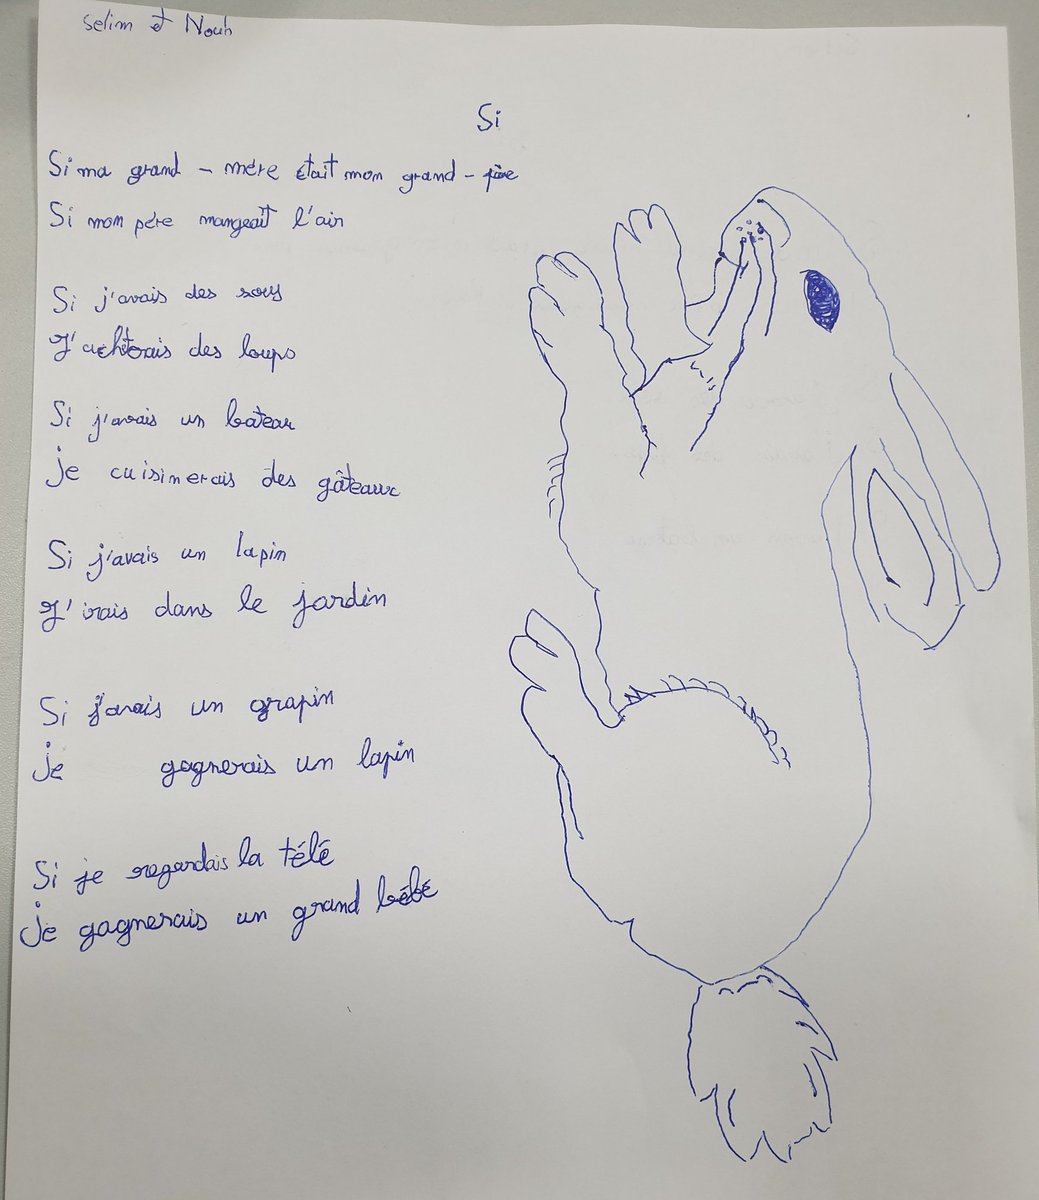 Selim et Nouh
Si
Si ma grand - mére était mon grand - père
Si mon pére mangeait l'air
Si j'avais des sous
J'achterais des loups
Si j'avais un bateau
je cuisinerais des gâteaux
Si j'avais un lapin
J'irais dans le jardin
Si j'avais un grapin
je gagnerais un lapin
Si je regardais la télé
je gagnerais un grand bébé